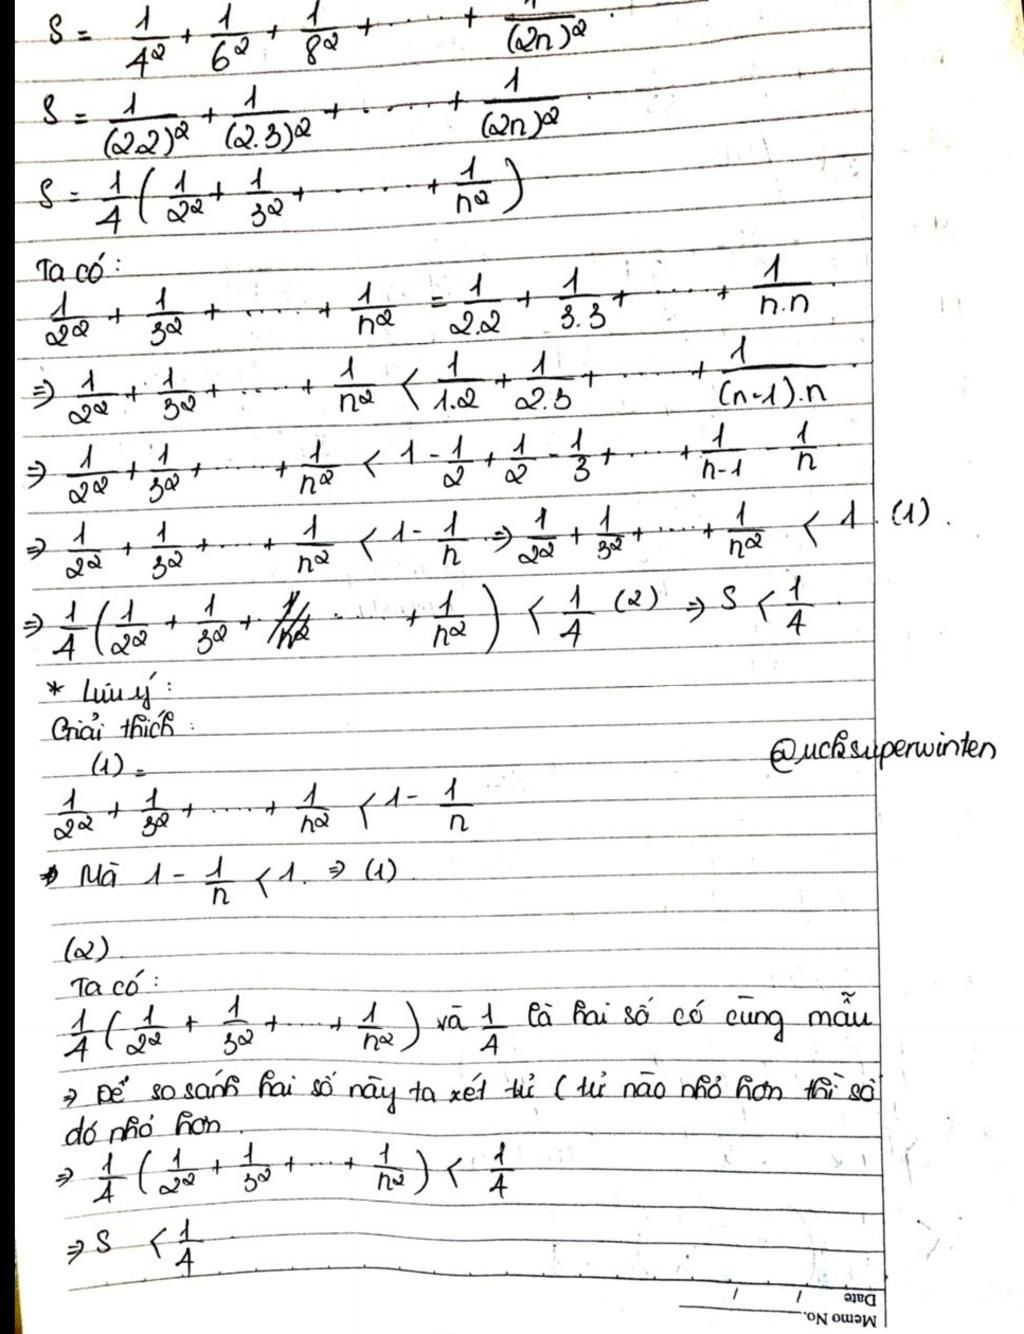 S = 1/4² + 1/6² + 1/8² + ...... + 1/(2n)².
S = 1/(2.2)² + 1/(2.3)² + ...... + 1/(2n)².
S = 1/4 (1/2² + 1/3² + ...... + 1/n²)
Ta có:
1/2² + 1/3² + ...... + 1/n² = 1/2.2 + 1/3.3 + ...... + 1/n.n
⇒ 1/2² + 1/3² + ...... + 1/n² < 1/1.2 + 1/2.3 + ...... + 1/(n-1).n
⇒ 1/2² + 1/3² + ...... + 1/n² < 1 - 1/2 + 1/2 - 1/3 + ...... + 1/n-1 - 1/n
⇒ 1/2² + 1/3² + ...... + 1/n² < 1 - 1/n ⇒ 1/2² + 1/3² + ...... + 1/n² < 1. (1).
⇒ 1/4 (1/2² + 1/3² + ...... + 1/n²) < 1/4 (2) ⇒ S < 1/4.
* Lưu ý:
Giải thích:
(1) =
1/2² + 1/3² + ...... + 1/n² < 1 - 1/n
@uchsuperwinten
Mà 1 - 1/n < 1. ⇒ (1)
(2)
Ta có:
1/4 (1/2² + 1/3² + ...... + 1/n²) và 1/4 là hai số có cùng mẫu
⇒ Để so sánh hai số này ta xét tử (tử nào nhỏ hơn thì số
đó nhỏ hơn.
⇒ 1/4 (1/2² + 1/3² + ... + 1/n²) < 1/4
⇒ S < 1/4
Memo No.
Date / /